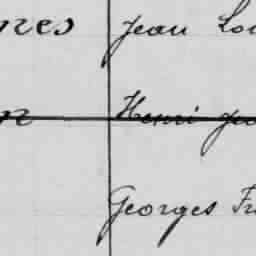 nes Jean Lou
Henri
Georges Fr